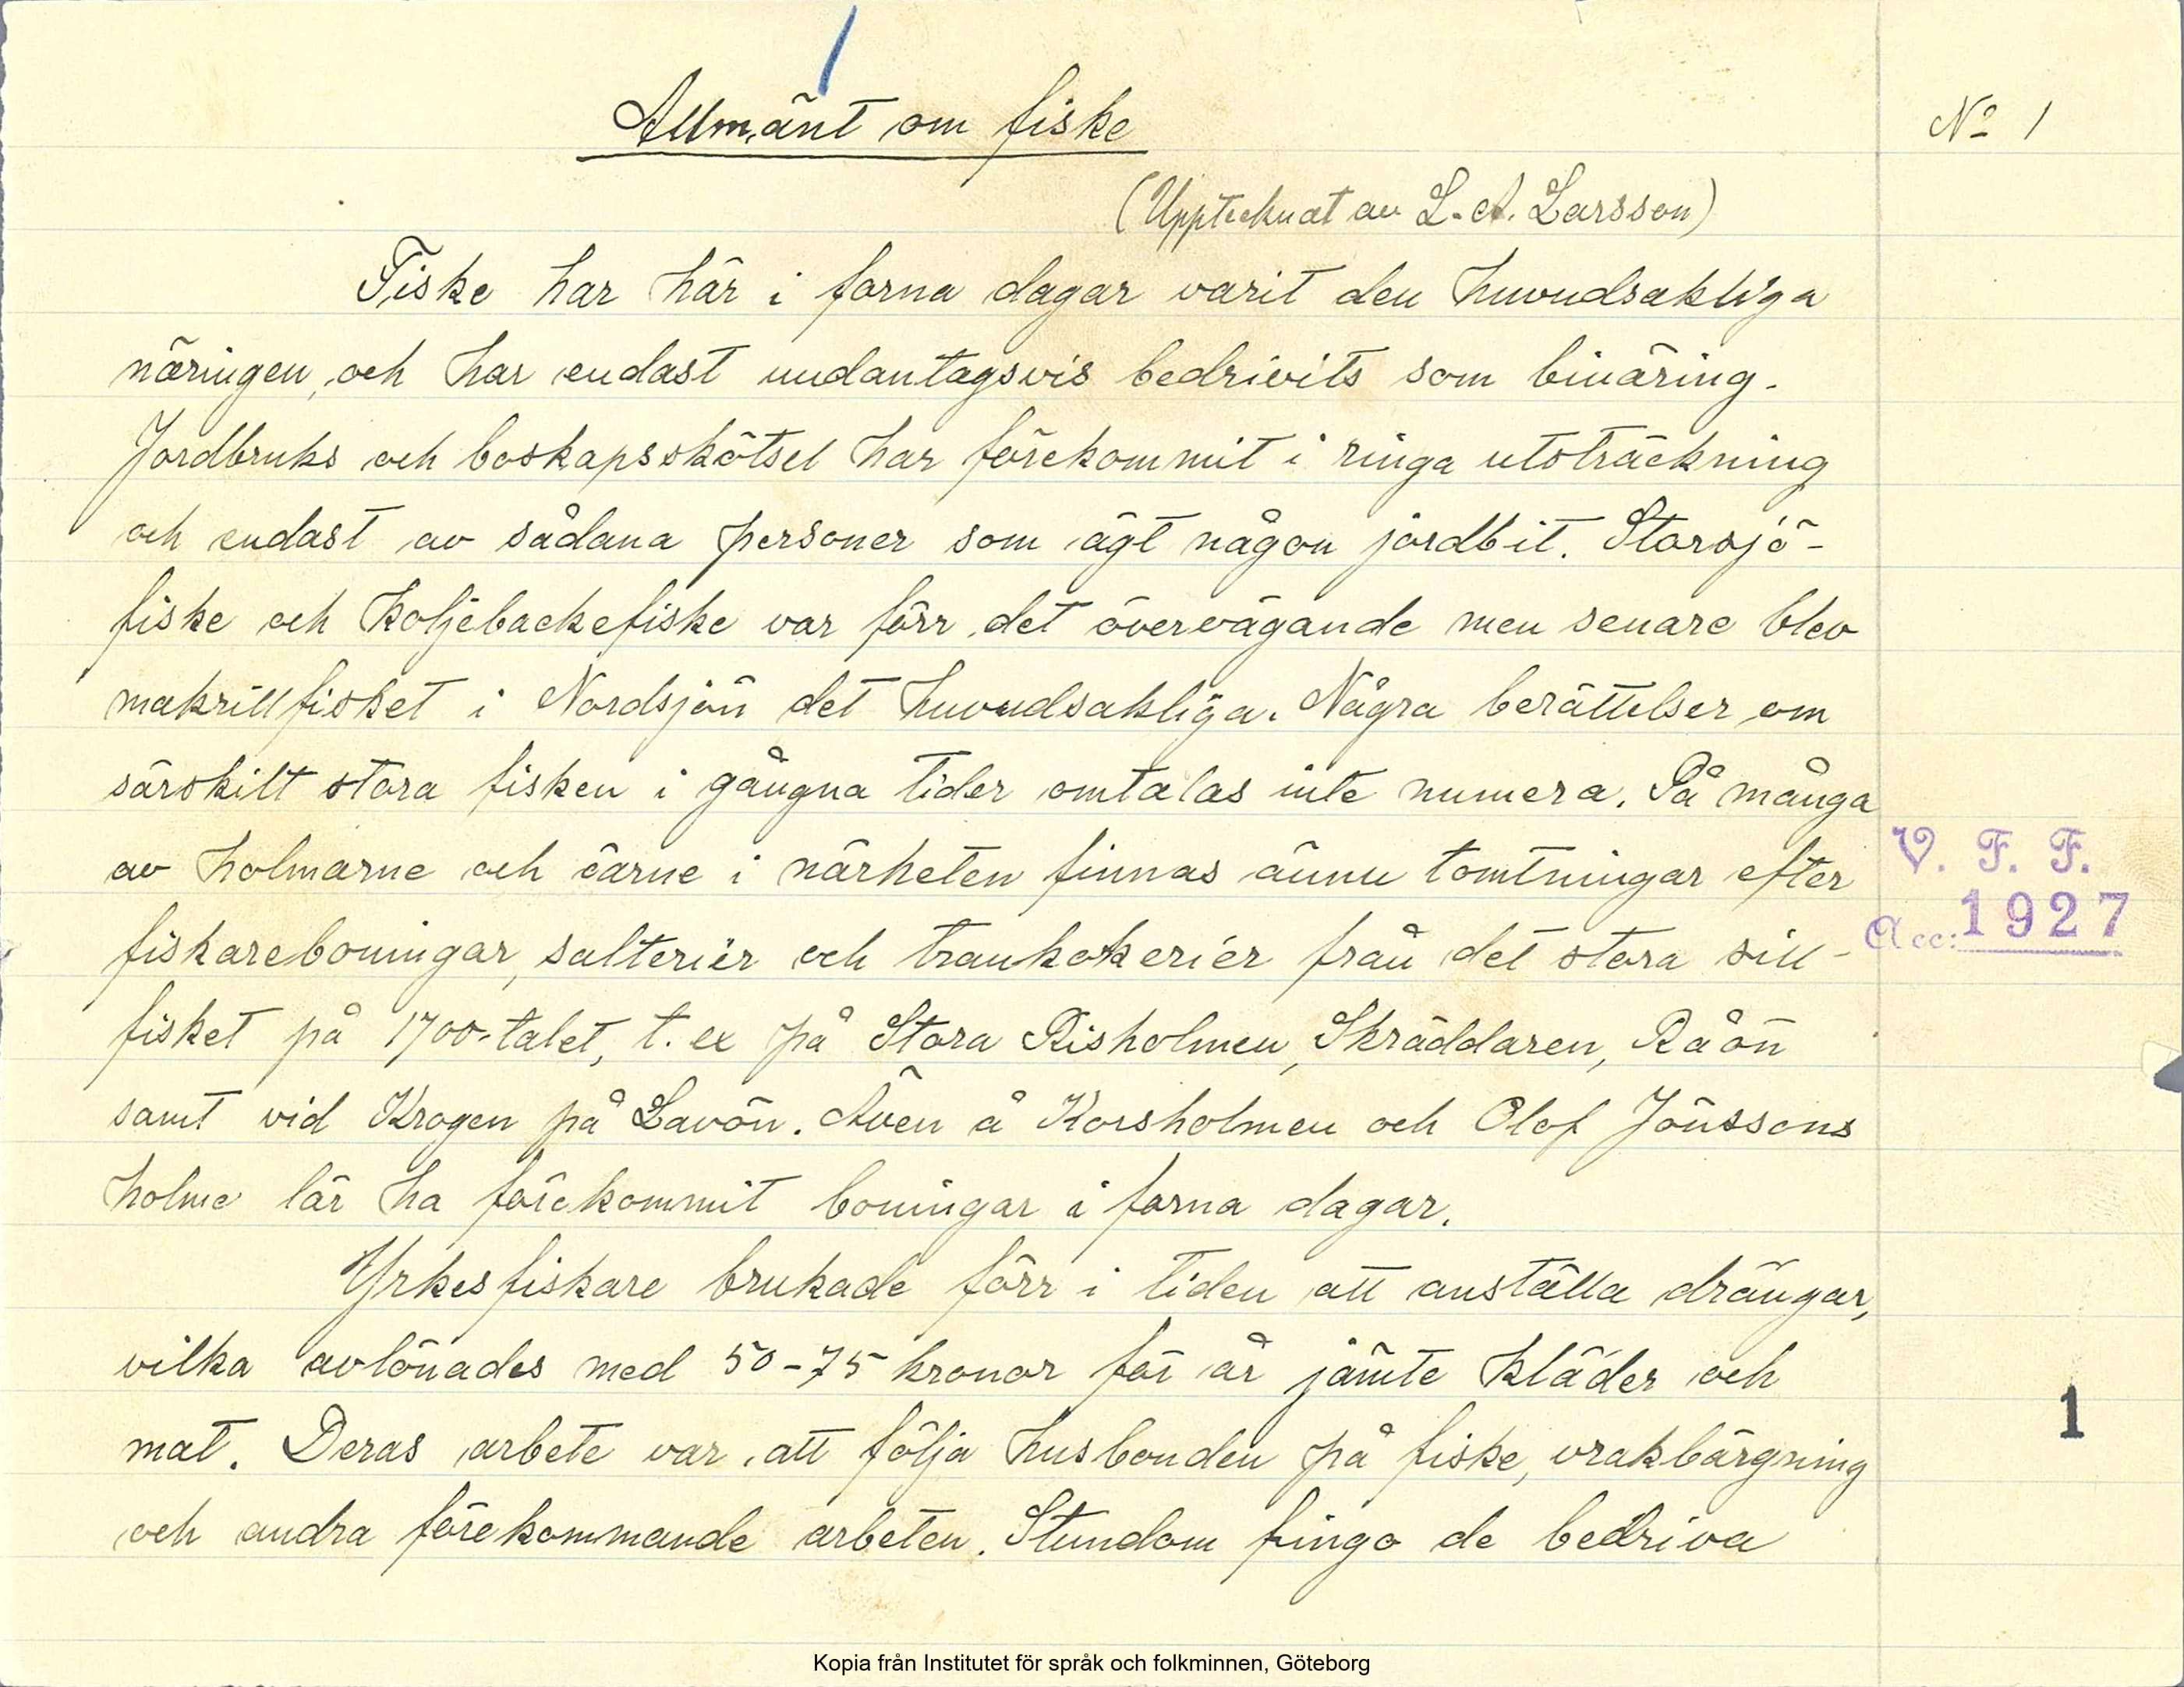 Allmänt om fiske
No 1
(Upptecknat av L. A. Larsson)
Fiske har här i forna dagar varit den huvudsakliga
näringen, och har endast undantagsvis bedrivits som binäring.
Jordbruks och boskapsskötsel har förekommit i ringa utsträckning
och endast av sådana personer som ägt någon jordbit. Storsjö-
fiske och koljebackefiske var förr det övervägande men senare blev
makrillfisket i Nordsjön det huvudsakliga. Några berättelser om
särskilt stora fisken i gångna tider omtalas inte numera. På många
av holmarne och öarne i närheten finnas ännu tomtningar efter
fiskareboningar, salteriër och trankokeriér från det stora sill-
fisket på 1700-talet, t. ex på Stora Risholmen, Skräddaren, Råön
samt vid Krogen på Lavön. Även å Korsholmen och Olof Jönssons
holme lär ha förekommit boningar i forna dagar.
Yrkesfiskare brukade förr i tiden att anställa drängar,
vilka avlönades med 50-75 kronor för år jämte kläder och
mat. Deras arbete var att följa husbonden på fiske, vrakbärgning
och andra förekommande arbeten. Stundom fingo de bedriva
V. F. F.
Acc: 1927
1
Kopia från Institutet för språk och folkminnen, Göteborg